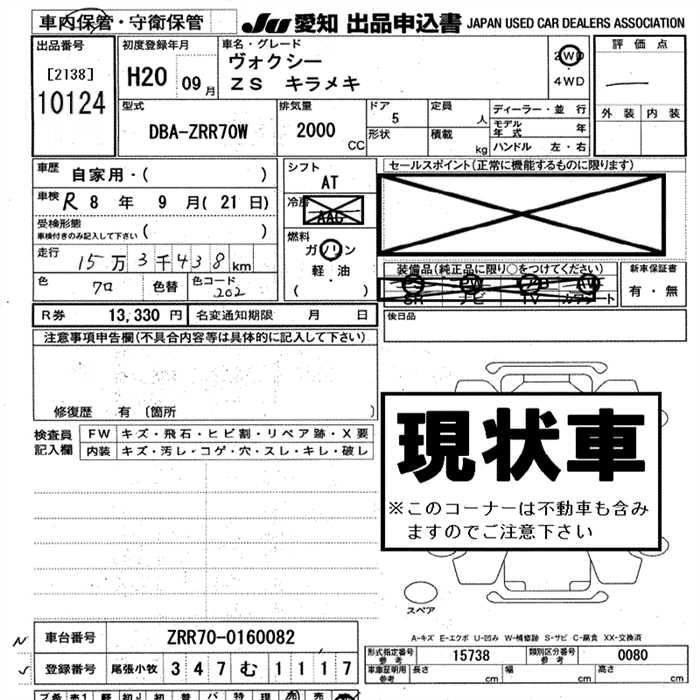 車内保管・守衛保管 JU 愛知 出品申込書 JAPAN USED CAR DEALERS ASSOCIATION
出品番号 初度登録年月 車名・グレード 評価点
[2138] H20 09月 ヴォクシー 2WD
10124 ZS キラメキ 4WD
外装 内装
型式 排気量 ドア 定員 ディーラー・並行
DBA-ZRR70W 2000 CC 5 人 モデル年式 年
形状 積載 kg ハンドル 左・右
車歴 自家用・( ) シフト AT セールスポイント(正常に機能するものに限ります)
車検 R 8 年 9 月( 21 日) 冷房 AAC
受検形態
車検付きのみ記入して下さい ( ) 燃料 ガソリン
走行 15万3千438km 軽・油
( )
装備品(純正品に限り○をつけてください) 新車保証書
SR ナビ TV カワシート 有・無
色 クロ 色替 色コード 202
R券 13,330 円 名変通知期限 月 日 後日品
注意事項申告欄(不具合内容等は具体的に記入して下さい)
修復歴 有 (箇所 )
検査員 FW キズ・飛石・ヒビ割・リペア跡・X要
記入欄 内装 キズ・汚レ・コゲ・穴・スレ・キレ・破レ
現状車
※このコーナーは不動車も含み
ますのでご注意下さい
スペア
A-キズ E-エクボ U-凹み W-補修跡 S-サビ C-腐食 XX-交換済
車台番号 ZRR70-0160082
登録番号 尾張小牧 347 む 1117
形式指定番号 参考 15738 類別区分番号 参考 0080
車庫証明用 参考 長さ cm 幅 cm 高さ cm